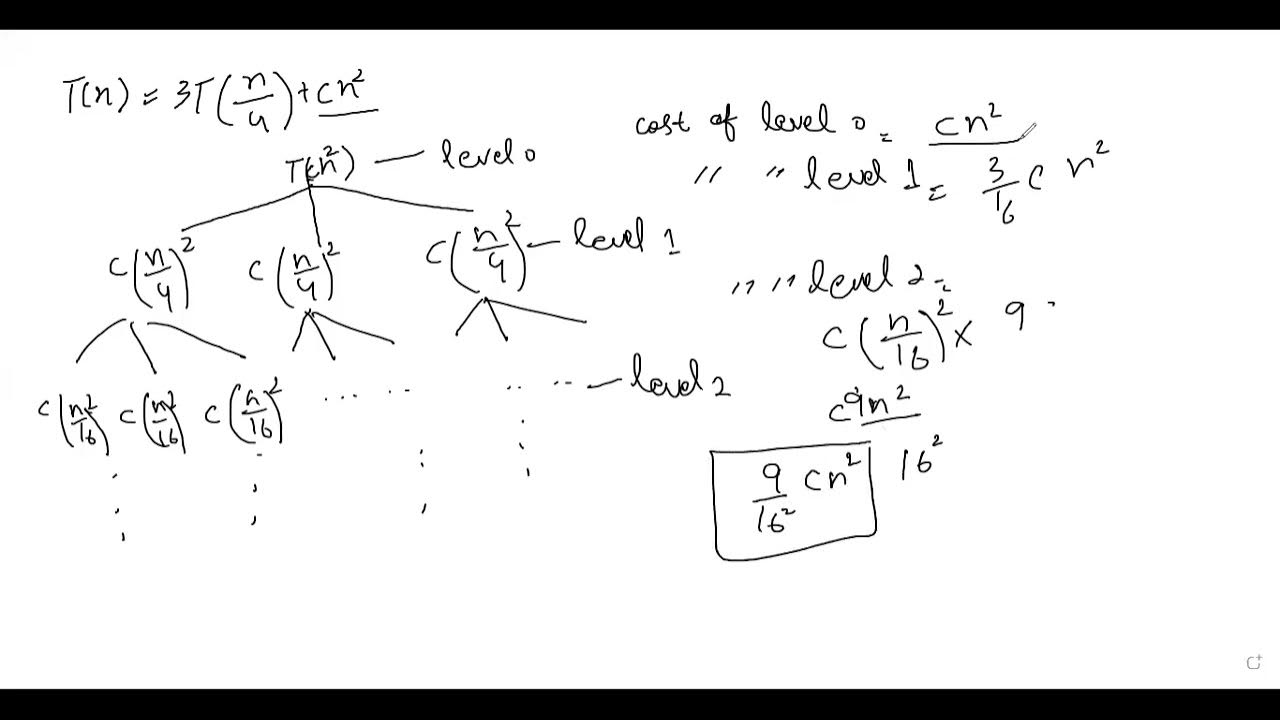 T(n) = 3T(n/4) + cn²
T(cn²) — level 0
c(n/4)² c(n/4)² c(n/4)² — level 1
c(n/16)² c(n/16)² c(n/16)² ... .. .. .. — level 2
cost of level 0 = cn²
" " level 1 = 3/16 c n²
" " level 2 =
c(n/16)² × 9
c9n²
16²
9/16² cn²